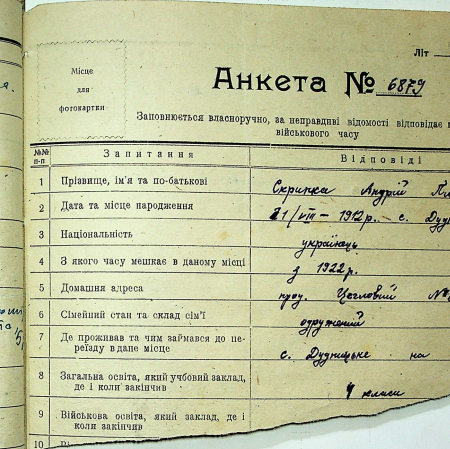 Літ
Місце
для
фотокартки
Анкета № 6879
Заповнюється власноручно, за неправдиві відомості відповідає
військового часу
№№ п-п Запитання Відповіді
1 Прізвище, ім'я та по-батькові Скрипка Андрій
2 Дата та місце народження 21/VIII – 1912 р. с.
3 Національність українець
4 З якого часу мешкає в даному місці з 1922 р.
5 Домашня адреса Цегловий №
6 Сімейний стан та склад сім'ї одружений
7 Де проживав та чим займався до пе-
реїзду в дане місце с. на
8 Загальна освіта, який учбовий заклад,
де і коли закінчив 4 класи
9 Військова освіта, який заклад, де і
коли закінчив
10